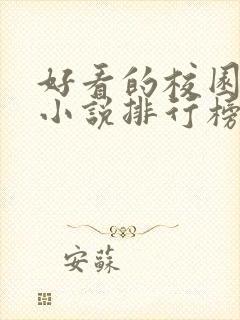 好看的校园
小说排行榜
安蘇